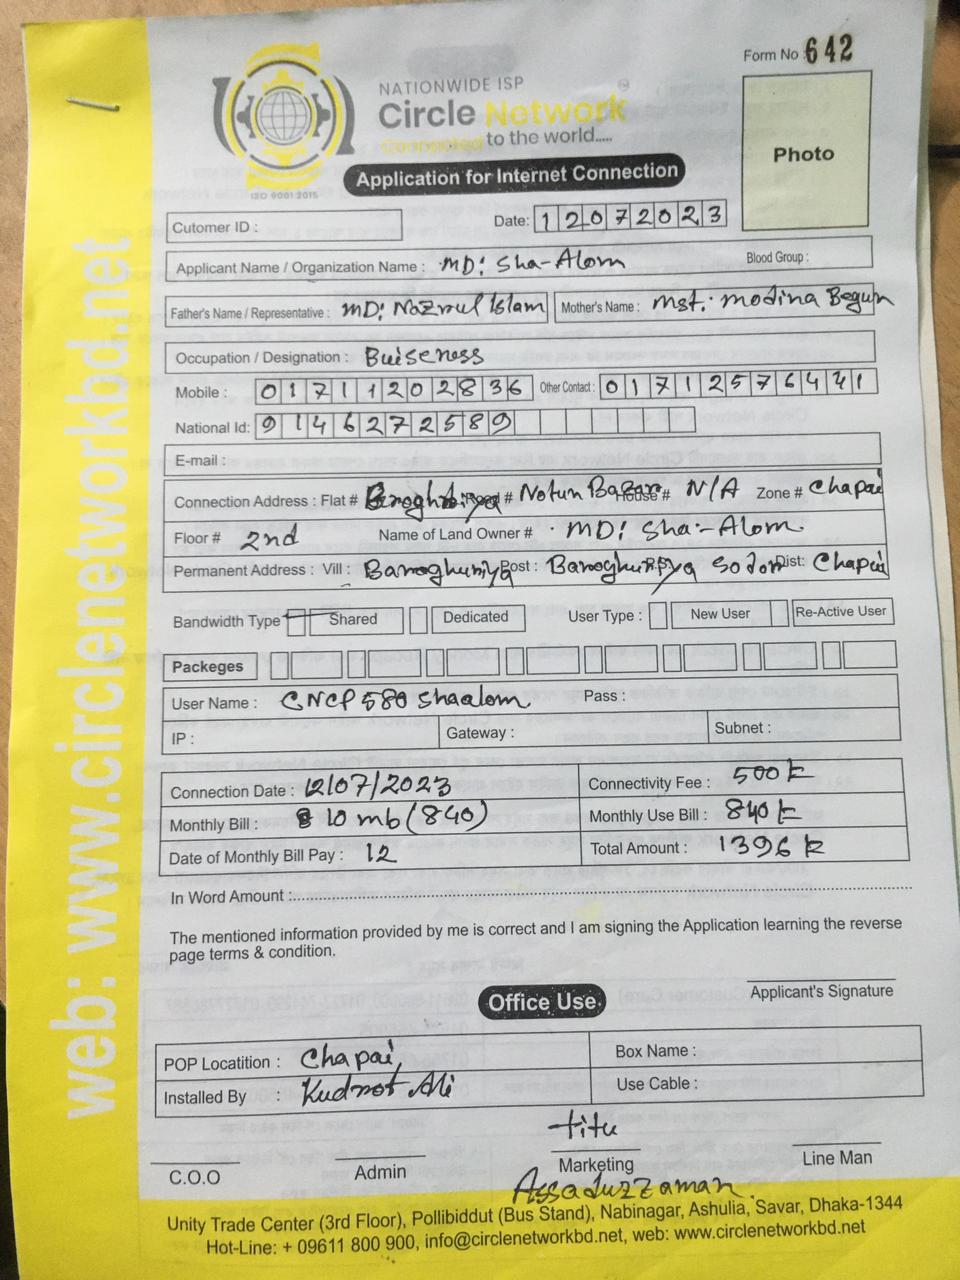 Form No 642
NATIONWIDE ISP
Circle Network
Connected to the world.....
ISO 9001:2015
Application for Internet Connection
Photo
Cutomer ID :
Date: 12072023
Applicant Name / Organization Name : MD: Sha-Alom Blood Group :
Father's Name / Representative : MD: Nazrul Islam Mother's Name : Mst. Modina Begum
Occupation / Designation : Buiseness
Mobile : 01711202836 Other Contact : 01712576441
National Id: 9146272589
E-mail :
Connection Address : Flat # Road # Notun Bazar House # N/A Zone # Chapai
Floor # 2nd Name of Land Owner # MD: Sha-Alom
Permanent Address : Vill : Baroghuriya Post : Baroghuriya Sodor Dist: Chapai
Bandwidth Type Shared Dedicated User Type : New User Re-Active User
Packeges
User Name : CNCP580 Shaalom Pass :
IP : Gateway : Subnet :
Connection Date : 12/07/2023 Connectivity Fee : 500 k
Monthly Bill : 10 mb (840) Monthly Use Bill : 840 k
Date of Monthly Bill Pay : 12 Total Amount : 1396 k
In Word Amount :
The mentioned information provided by me is correct and I am signing the Application learning the reverse
page terms & condition.
Applicant's Signature
Office Use
POP Locatition : Chapai Box Name :
Installed By : Kudrot Ali Use Cable :
titu
C.O.O Admin Marketing Line Man
Assaduzzaman.
Unity Trade Center (3rd Floor), Pollibiddut (Bus Stand), Nabinagar, Ashulia, Savar, Dhaka-1344
Hot-Line: + 09611 800 900, info@circlenetworkbd.net, web: www.circlenetworkbd.net
web: www.circlenetworkbd.net